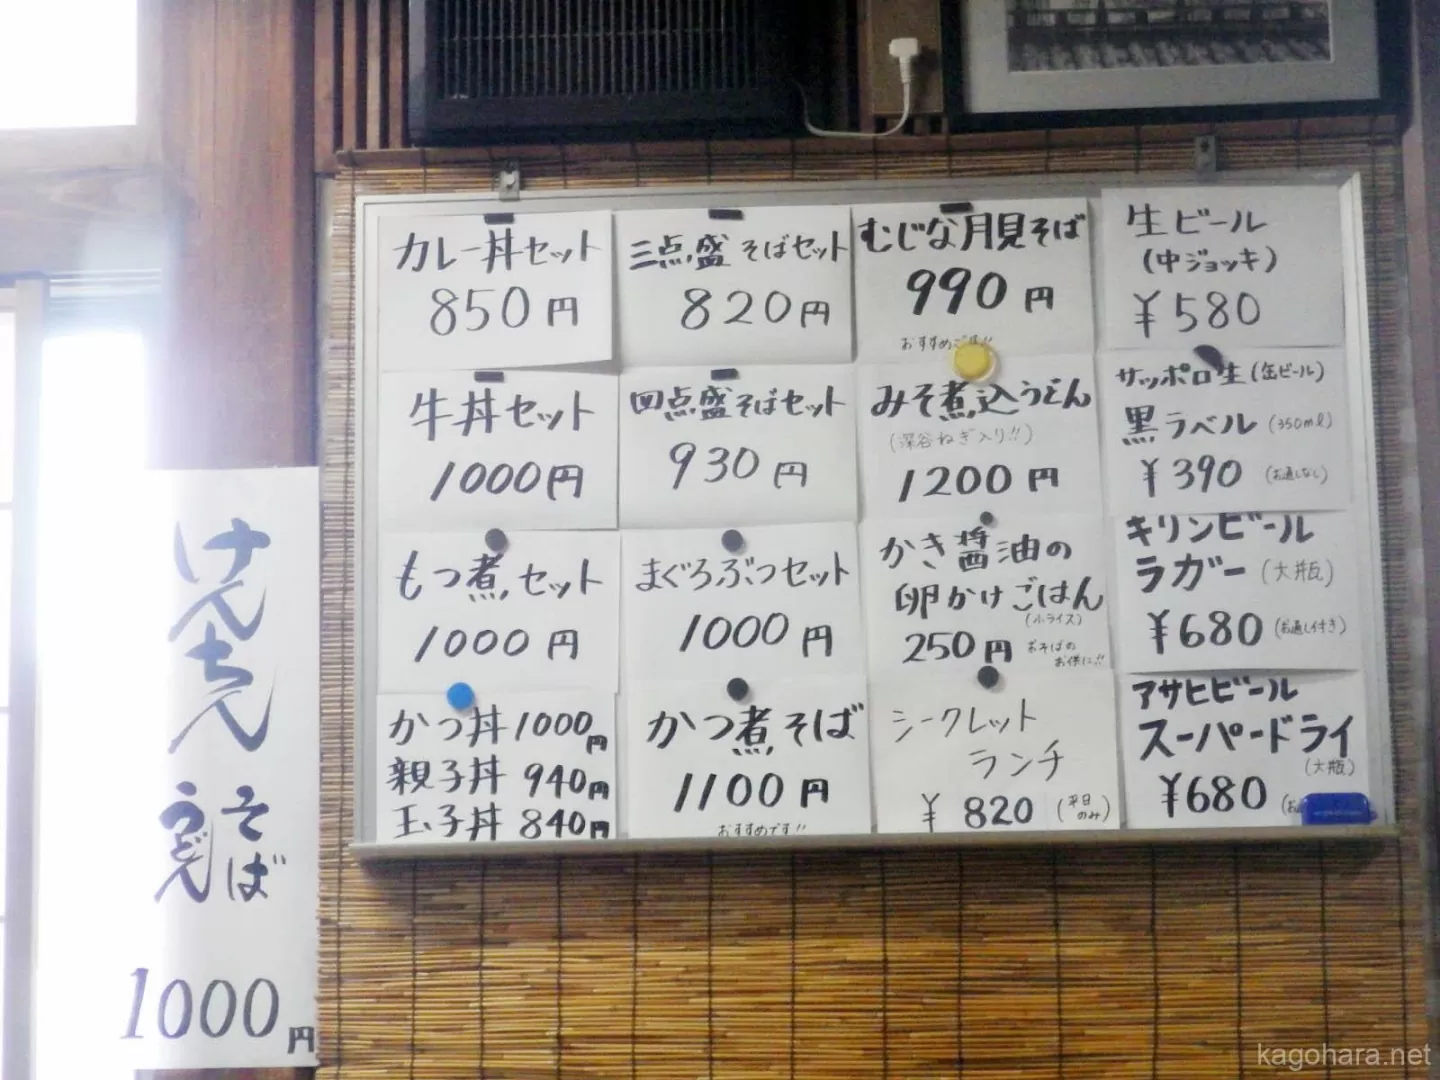 カレー丼セット
850円
三点盛そばセット
820円
むじな月見そば
990円
おすすめです!!
生ビール
(中ジョッキ)
¥580
牛丼セット
1000円
四点盛そばセット
930円
みそ煮込うどん
(深谷ねぎ入り!!)
1200円
サッポロ生(缶ビール)
黒ラベル(350ml)
¥390(お通しなし)
もつ煮セット
1000円
まぐろぶつセット
1000円
かき醤油の
卵かけごはん
(小ライス)
250円 おそばの
お供に!!
キリンビール
ラガー(大瓶)
¥680(お通し付き)
かつ丼1000円
親子丼 940円
玉子丼 840円
かつ煮そば
1100円
おすすめです!!
シークレット
ランチ
¥820(平日のみ)
アサヒビール
スーパードライ
(大瓶)
¥680
けんちん
そば
うどん
1000円
kagohara.net